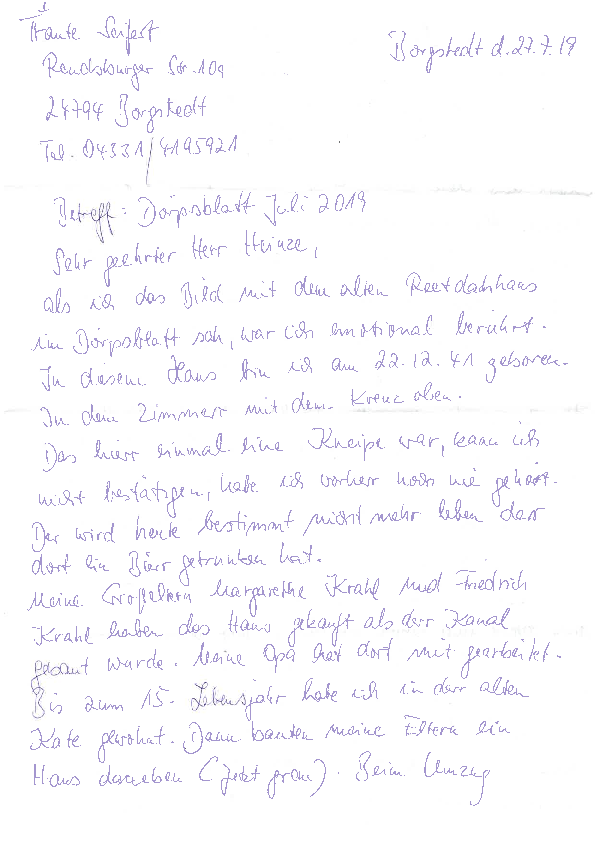 Frauke Seifert
Borgstedt d. 27.7.19
Rendsburger Str. 10a
24794 Borgstedt
Tel. 04331/4195921
Betreff: Dörpsblatt Juli 2019
Sehr geehrter Herr Heinze,
als ich das Bild mit dem alten Reetdachhaus
im Dörpsblatt sah, war ich emotional berührt.
In diesem Haus bin ich am 22.12.41 geboren.
In dem Zimmer mit dem Kreuz oben.
Das hier einmal eine Kneipe war, kann ich
nicht bestätigen, habe ich vorher noch nie gehört.
Der wird heute bestimmt nicht mehr leben der
dort ein Bier getrunken hat.
Meine Großeltern Margarethe Krahl und Friedrich
Krahl haben das Haus gekauft als der Kanal
gebaut wurde. Meine Opa hat dort mit gearbeitet.
Bis zum 15. Lebensjahr habe ich in der alten
Kate gewohnt. Dann bauten meine Eltern ein
Haus daneben (jetzt grau). Beim Umzug